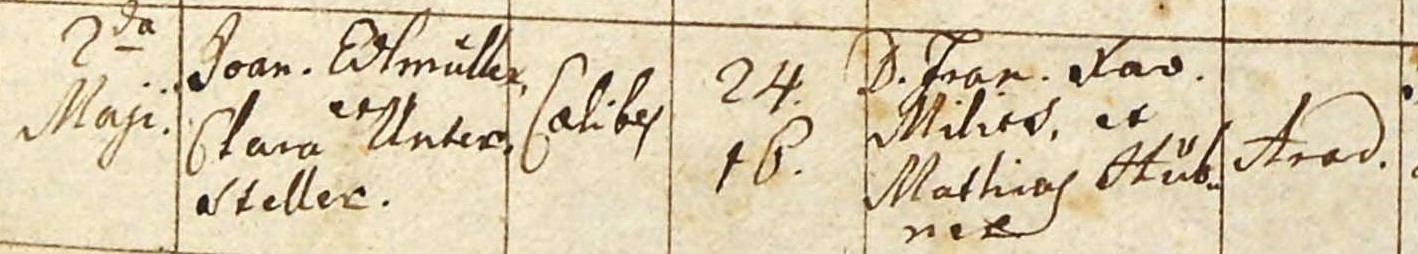 2da
Maji.
Joan. Edlmüller,
et
Clara Unter,
steller.
Cælibes
24.
16.
D. Fran. Xav.
Milics, et
Mathias Hüb„
ner
Arad.